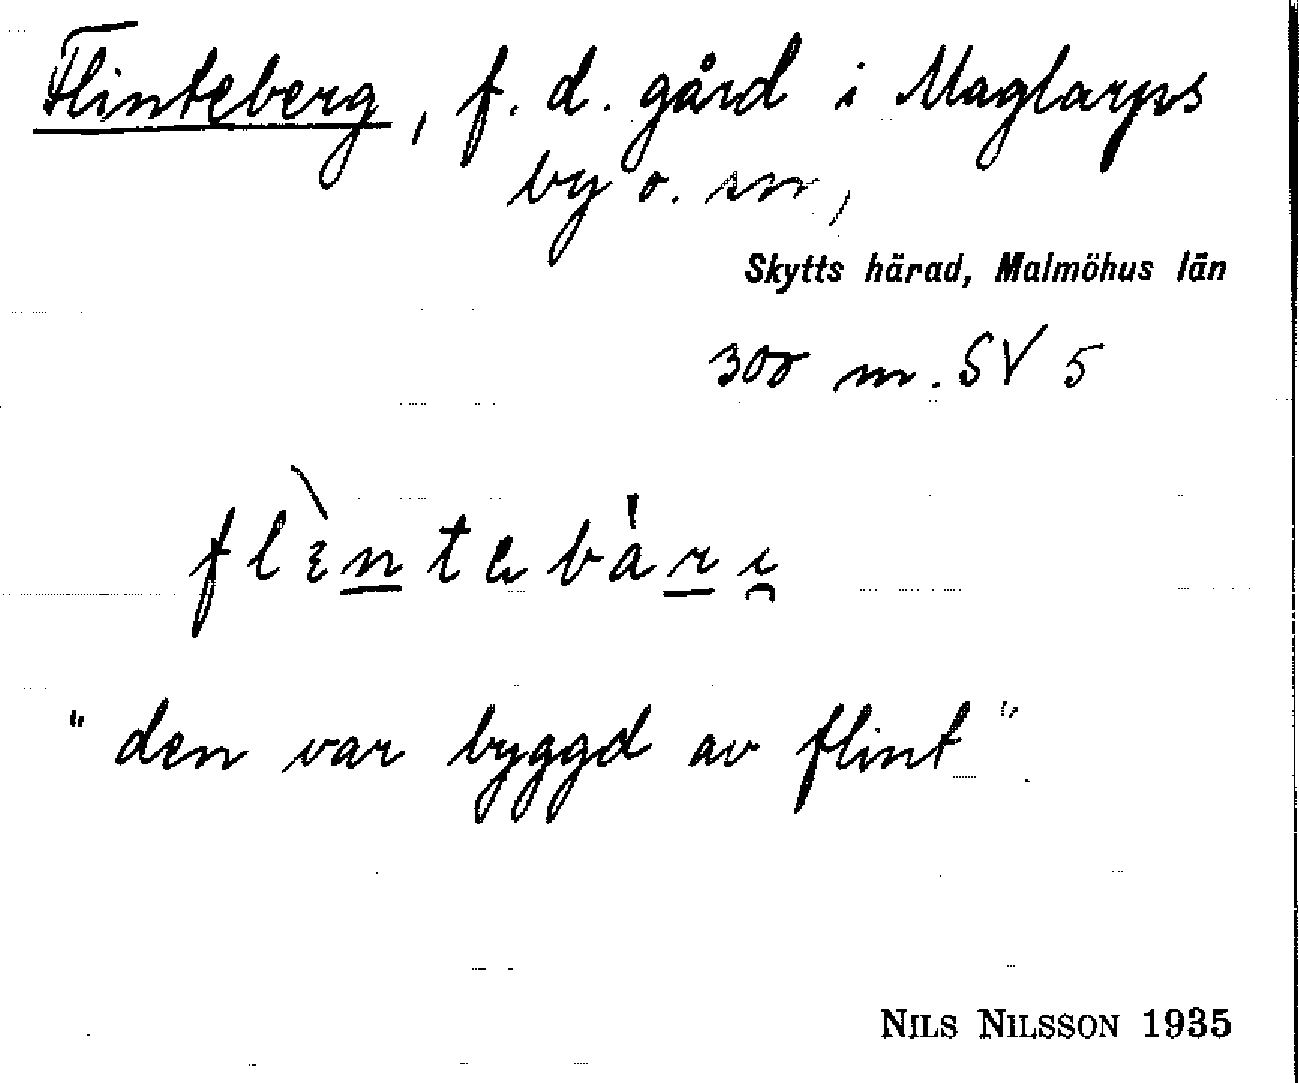 Flinteberg, f. d. gård i Maglarps
by o. sn,
Skytts härad, Malmöhus län
300 m. SV 5
"den var byggd av flint"
NILS NILSSON 1935